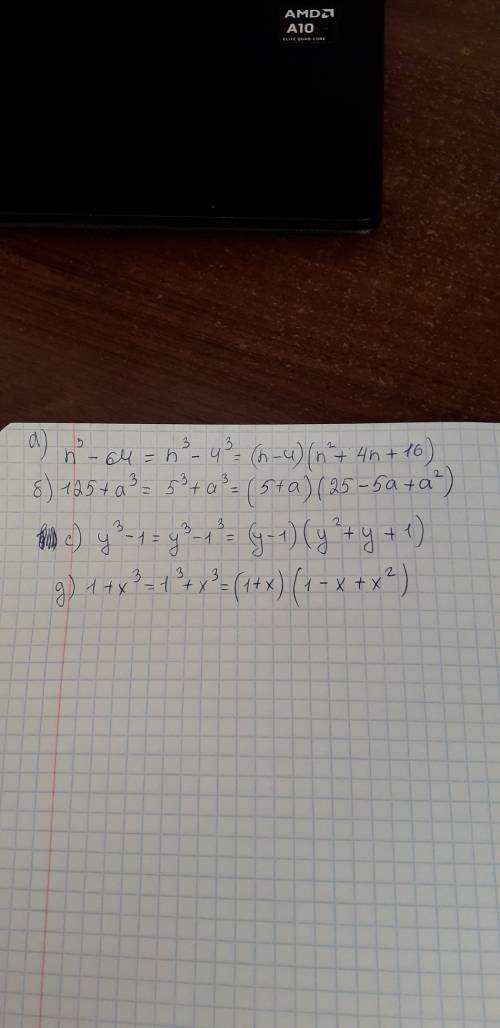 AMD
A10
ELITE QUAD-CORE
а) n³ - 64 = n³ - 4³ = (n-4)(n² + 4n + 16)
б) 125 + a³ = 5³ + a³ = (5+a)(25 - 5a + a²)
с) y³ - 1 = y³ - 1³ = (y-1)(y² + y + 1)
д) 1 + x³ = 1³ + x³ = (1+x)(1 - x + x²)